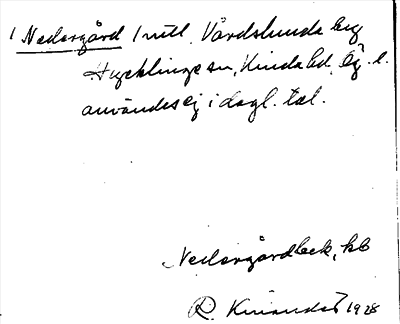 1 Nedergård 1 mtl, Vårdslunda by
Hycklinge sn, Kinda hd, Ög. l.
användes ej i dagl. tal.
Nedergårdbeck, kb
R. 1928